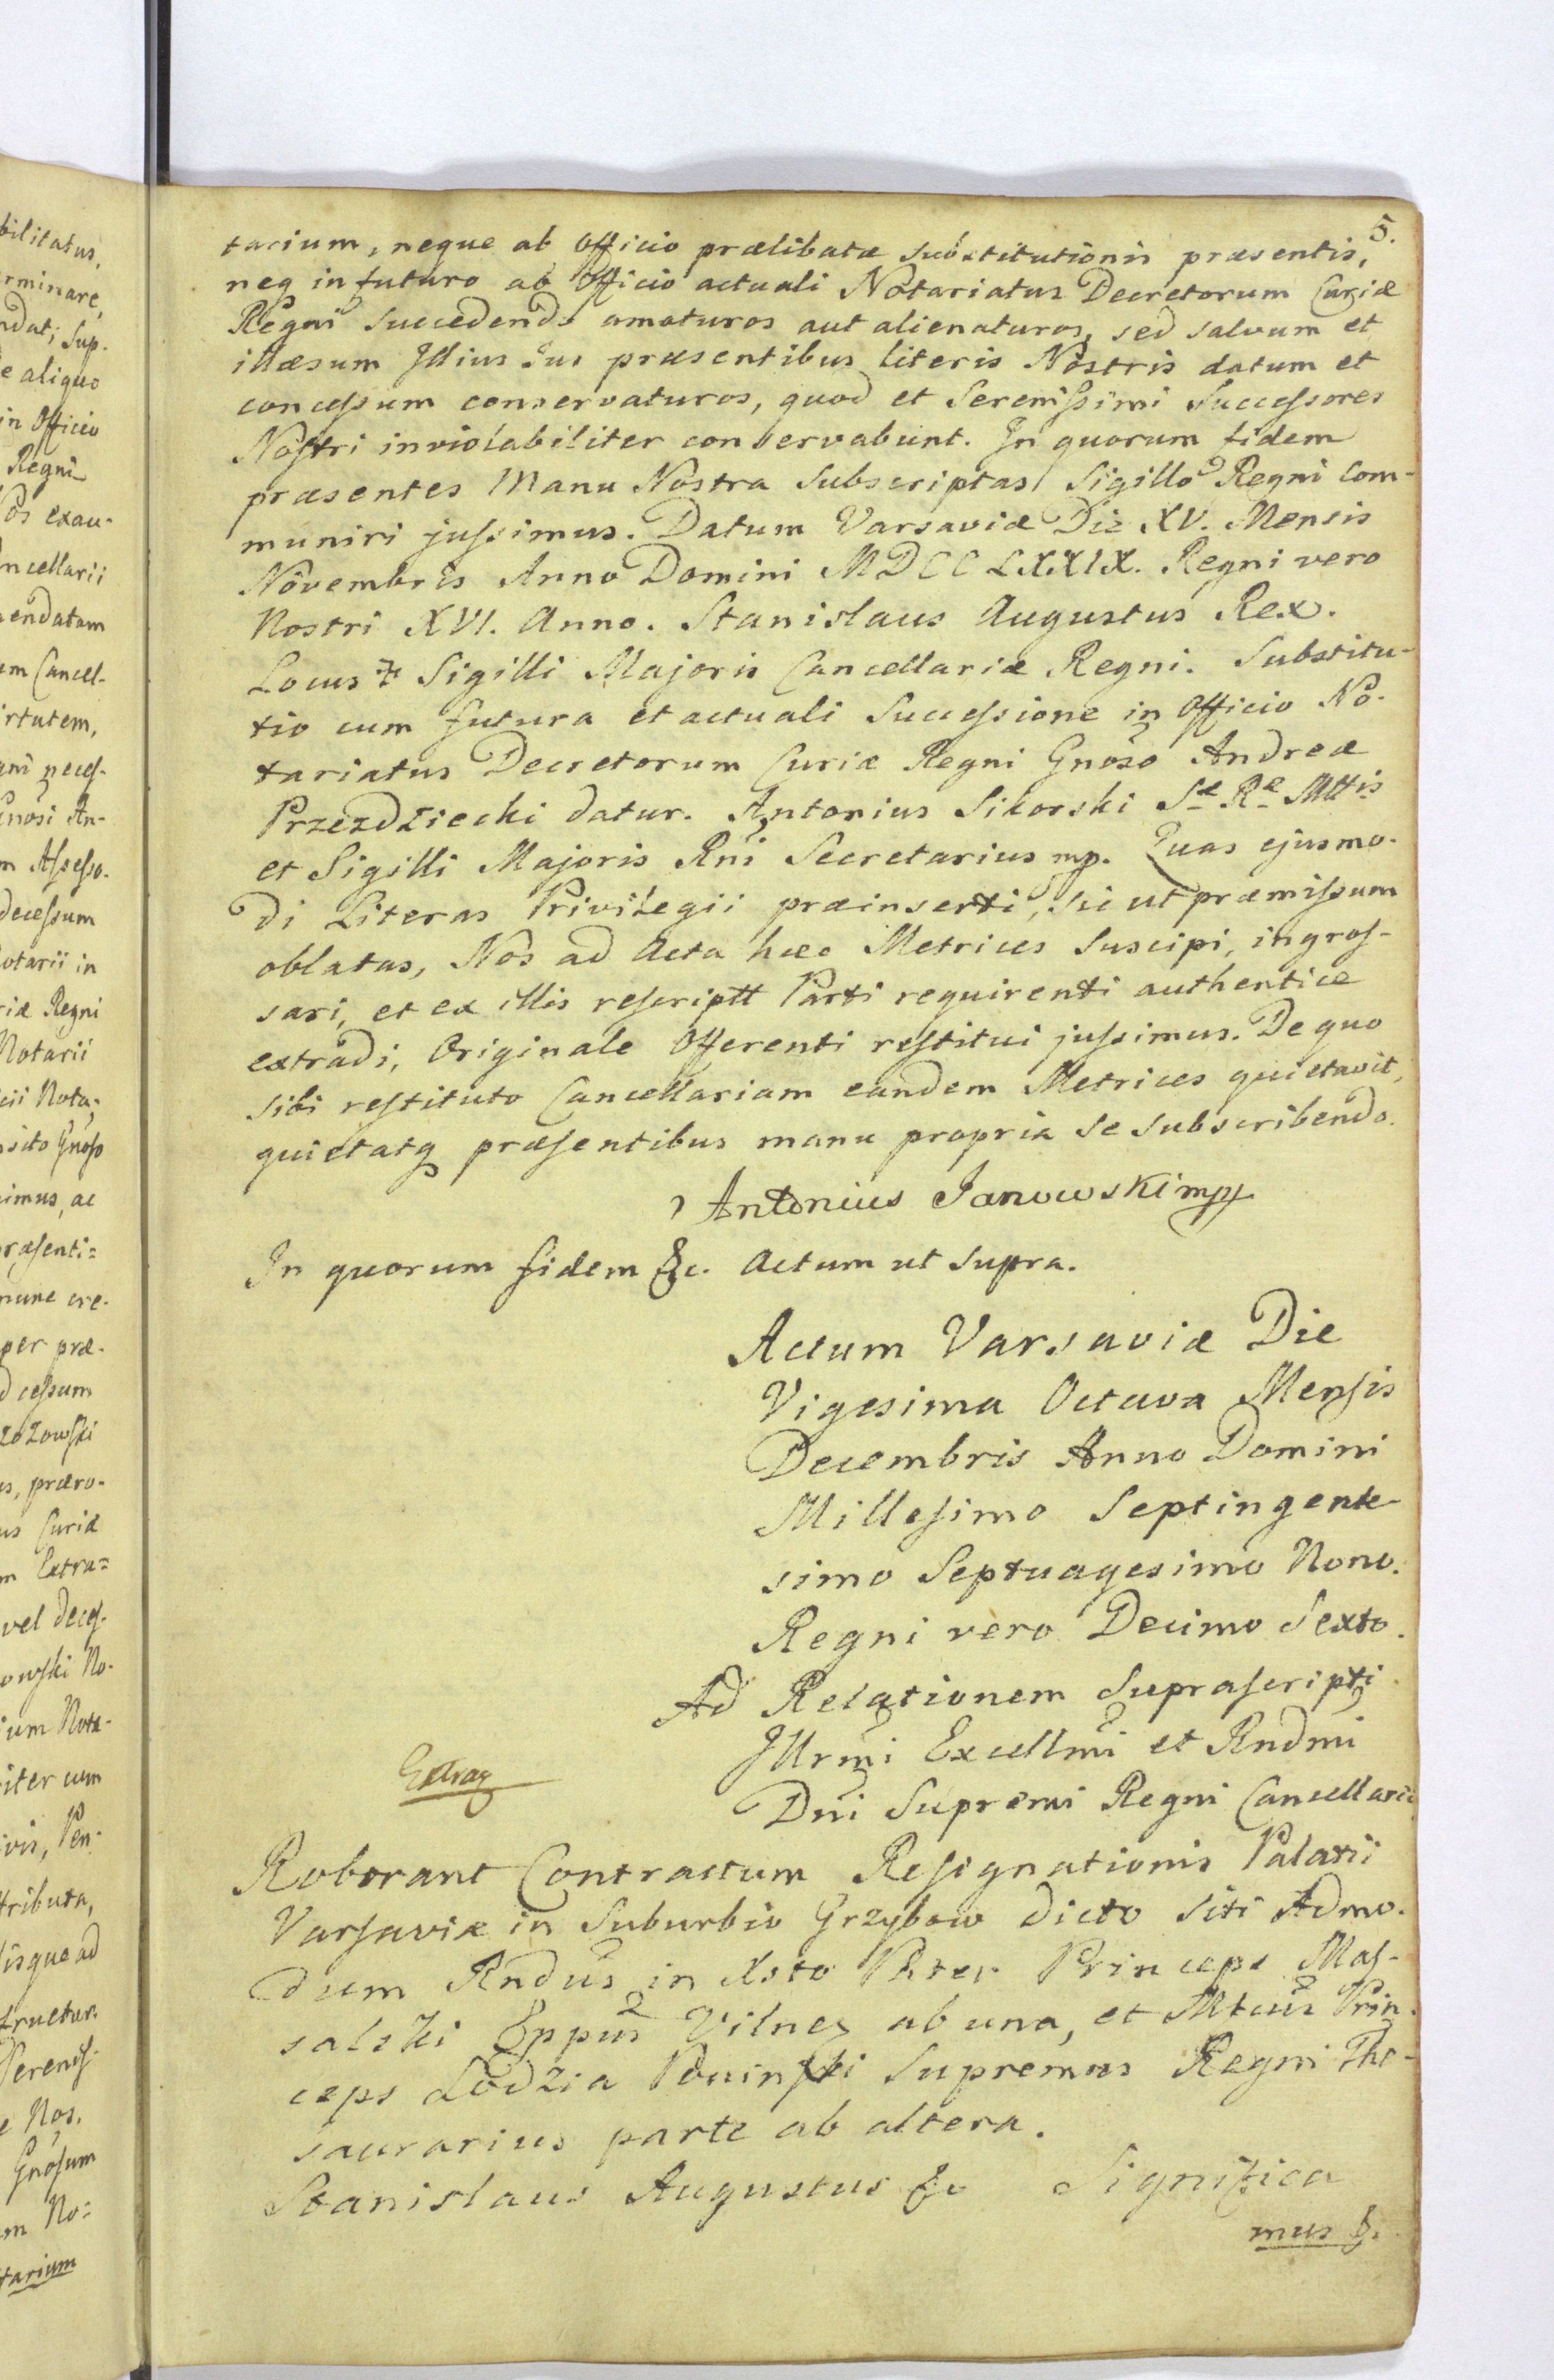 bilitatus,
rminare,
ndat; Sup-
e aliquo
in Officio
Regni
os exau-
ncellarii
endatam
em Cancel-
irtutem,
gni neces-
Gnosi An-
m Assesso-
decessum
otarii in
riæ Regni
Notarii
cii Nota-
sito Gnoso
imus, ac
præsenti=
nunc cre-
per præ-
d cessum
zozowski
us, præro-
us Curiæ
m Extra=
vel deces-
owski No-
ium Nota-
iter cum
ivis, Pen-
tributa,
isque ad
tructur.
Sereniss-
e Nos,
Gnosum
m No=
tarium
5.
tarium, neque ab Officio prælibatæ substitutionis præsentis,
neq in futuro ab Officio actuali Notariatus Decretorum Curiæ
Regni succedendo amoturos aut alienaturos, sed salvum et
illæsum Illius Jus præsentibus literis Nostris datum et
concessum conservaturos, quod et Serenissimi Successores
Nostri inviolabiliter conservabunt. In quorum fidem
præsentes Manu Nostra Subscriptas Sigillo Regni Com-
muniri jussimus. Datum Varsaviæ Die XV. Mensis
Novembris Anno Domini MDCCLXXIX. Regni vero
Nostri XVI. Anno. Stanislaus Augustus Rex.
Locus Sigilli Majoris Cancellariæ Regni. Substitu-
tio cum futura et actuali Successione in Officio No-
tariatus Decretorum Curiæ Regni Gnoso Andreæ
Przezdziecki datur. Antonius Sikorski Sæ Ræ Mttis
et Sigilli Majoris Rni Secretarius mp. Quas ejusmo-
di Literas Privilegii præinserti, sic ut præmissum
oblatas, Nos ad Acta hæc Metrices Suscipi, ingros-
sari, et ex illis rescriptt Parti requirenti authentice
extradi, Originale Offerenti restitui jussimus. De quo
sibi restituto Cancellariam eandem Metrices quietavit,
quietatq præsentibus manu propria se subscribendo.
Antonius Janowski mp
In quorum fidem &c. Actum ut supra.
Actum Varsaviæ Die
Vigesima Octava Mensis
Decembris Anno Domini
Millesimo Septingente-
simo Septuagesimo Nono.
Regni vero Decimo Sexto.
Ad Relationem Suprascripti
Illrmi Excellmi et Rndmi
Dni Supremi Regni Cancellarii
Roborant Contractum Resignationis Palatii
Varsaviæ in Suburbio Grzybow dicto siti Admo-
dum Rndus in Xsto Pater Princeps Mas-
salski Eppus Vilnen ab una, et Mtcus Prin-
ceps Lodzia Poninski Supremus Regni The-
saurarius parte ab altera.
Stanislaus Augustus &c Significa
mus &.